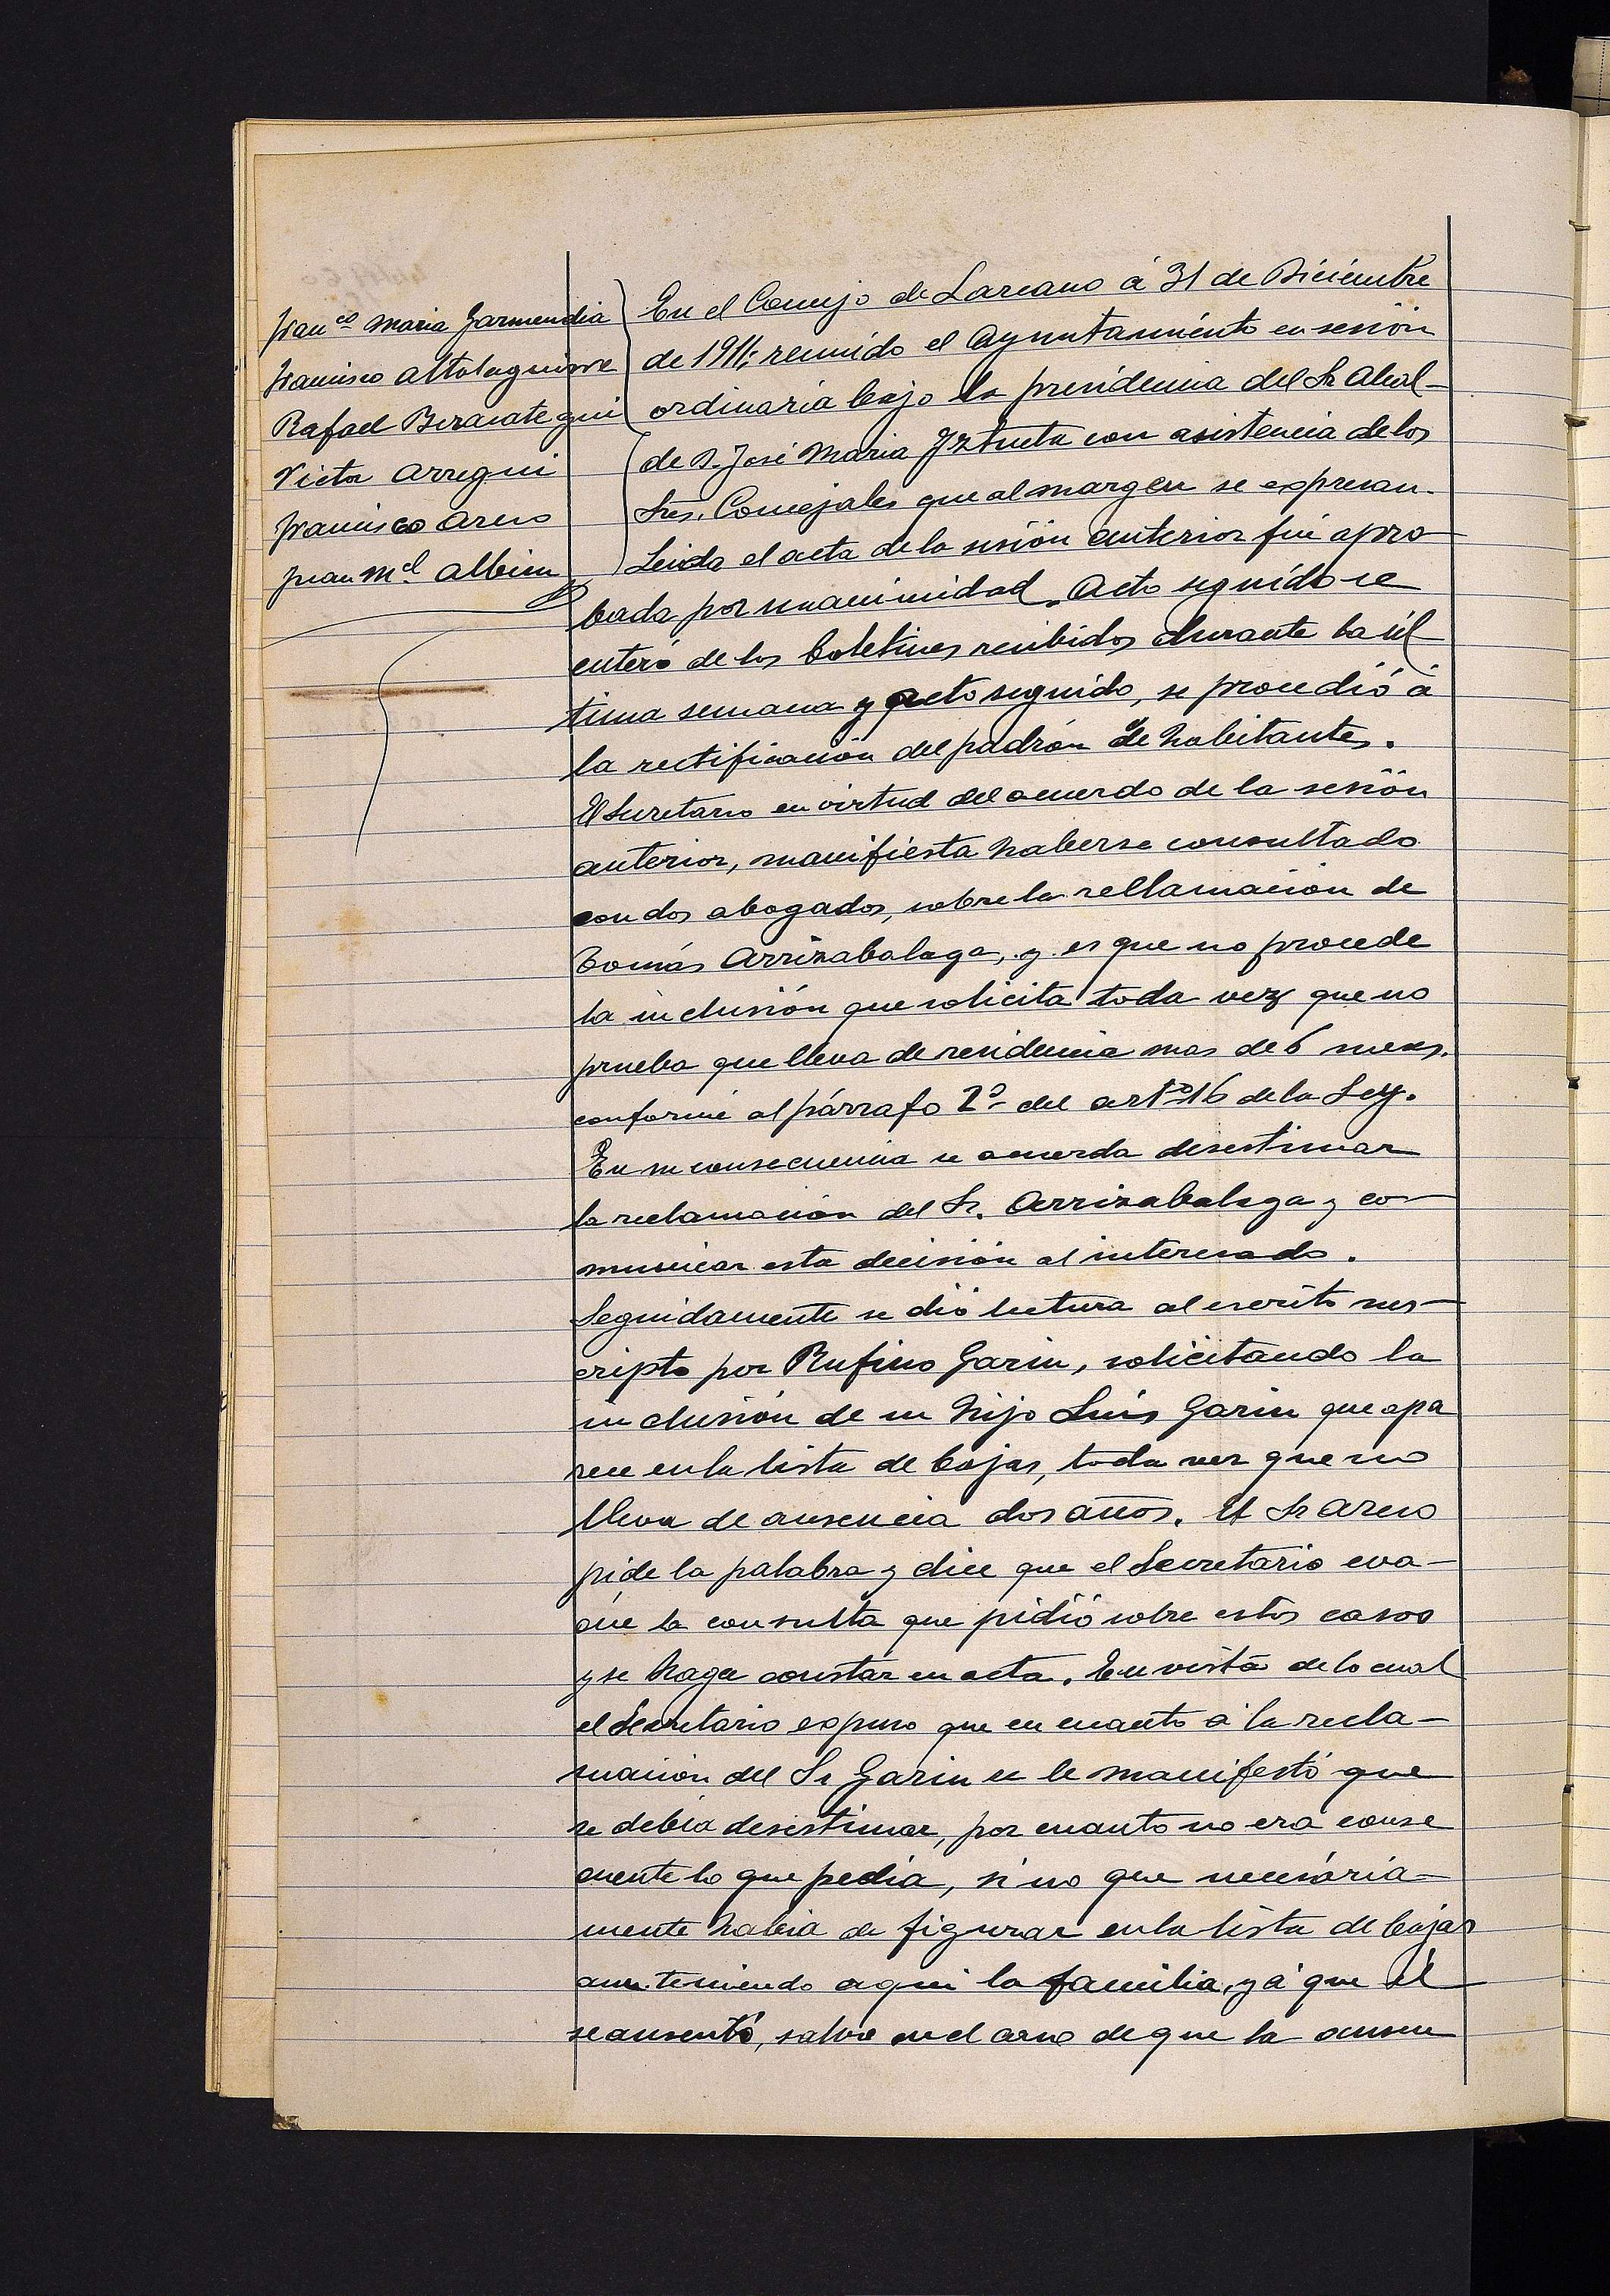 Fran.co Maria Garmendia
Francisco Altolaguirre
Rafael Berasategui
Victor Arregui
Francisco Areso
Juan M.l Albisu
En el Concejo de Lazcano á 31 de Diciembre
de 1911; reunido el Ayuntamiento en sesión
ordinaria bajo la presidencia del Sr Alcal-
de D. José Maria Iztueta con asistencia de los
Sres. Concejales que al margen se expresan.
Leida el acta de la sesión anterior fué apro
bada por unanimidad. Acto seguido se
enteró de los boletines recibidos durante la úl
tima semana y acto seguido, se procedió á
la rectificación del padrón de habitantes.
El Secretario en virtud del acuerdo de la sesión
anterior, manifiesta haberse consultado
con dos abogados, sobre la rellamación de
Tomás Arrizabalaga, y es que no procede
la inclusión que solicita toda vez que no
prueba que lleva de residencia mas de 6 meses.
conforme al párrafo 2º del artº 16 de la Ley.
En su consecuencia se acuerda desestimar
la reclamación del Sr. Arrizabalaga y co-
municar esta decisión al interesado.
Seguidamente se dió lectura al escrito sus-
cripto por Rufino Garin, solicitando la
inclusión de su hijo Luis Garin que apa
rece en la lista de bajas, toda vez que no
lleva de ausencia dos años. El Sr Areso
pide la palabra y dice que el Secretario eva-
cúe la consulta que pidió sobre estos casos
y se haga constar en acta. En vista de lo cual
el Secretario expuso que en cuanto á la recla-
mación del Sr Garin se le manifestó que
se debia desestimar, por cuanto no era conse
cuente lo que pedia, si no que necesaria-
mente habia de figurar en la lista de bajas
aun teniendo aqui la familia, yá que él
se ausentó, salvo en el caso de que la ausen